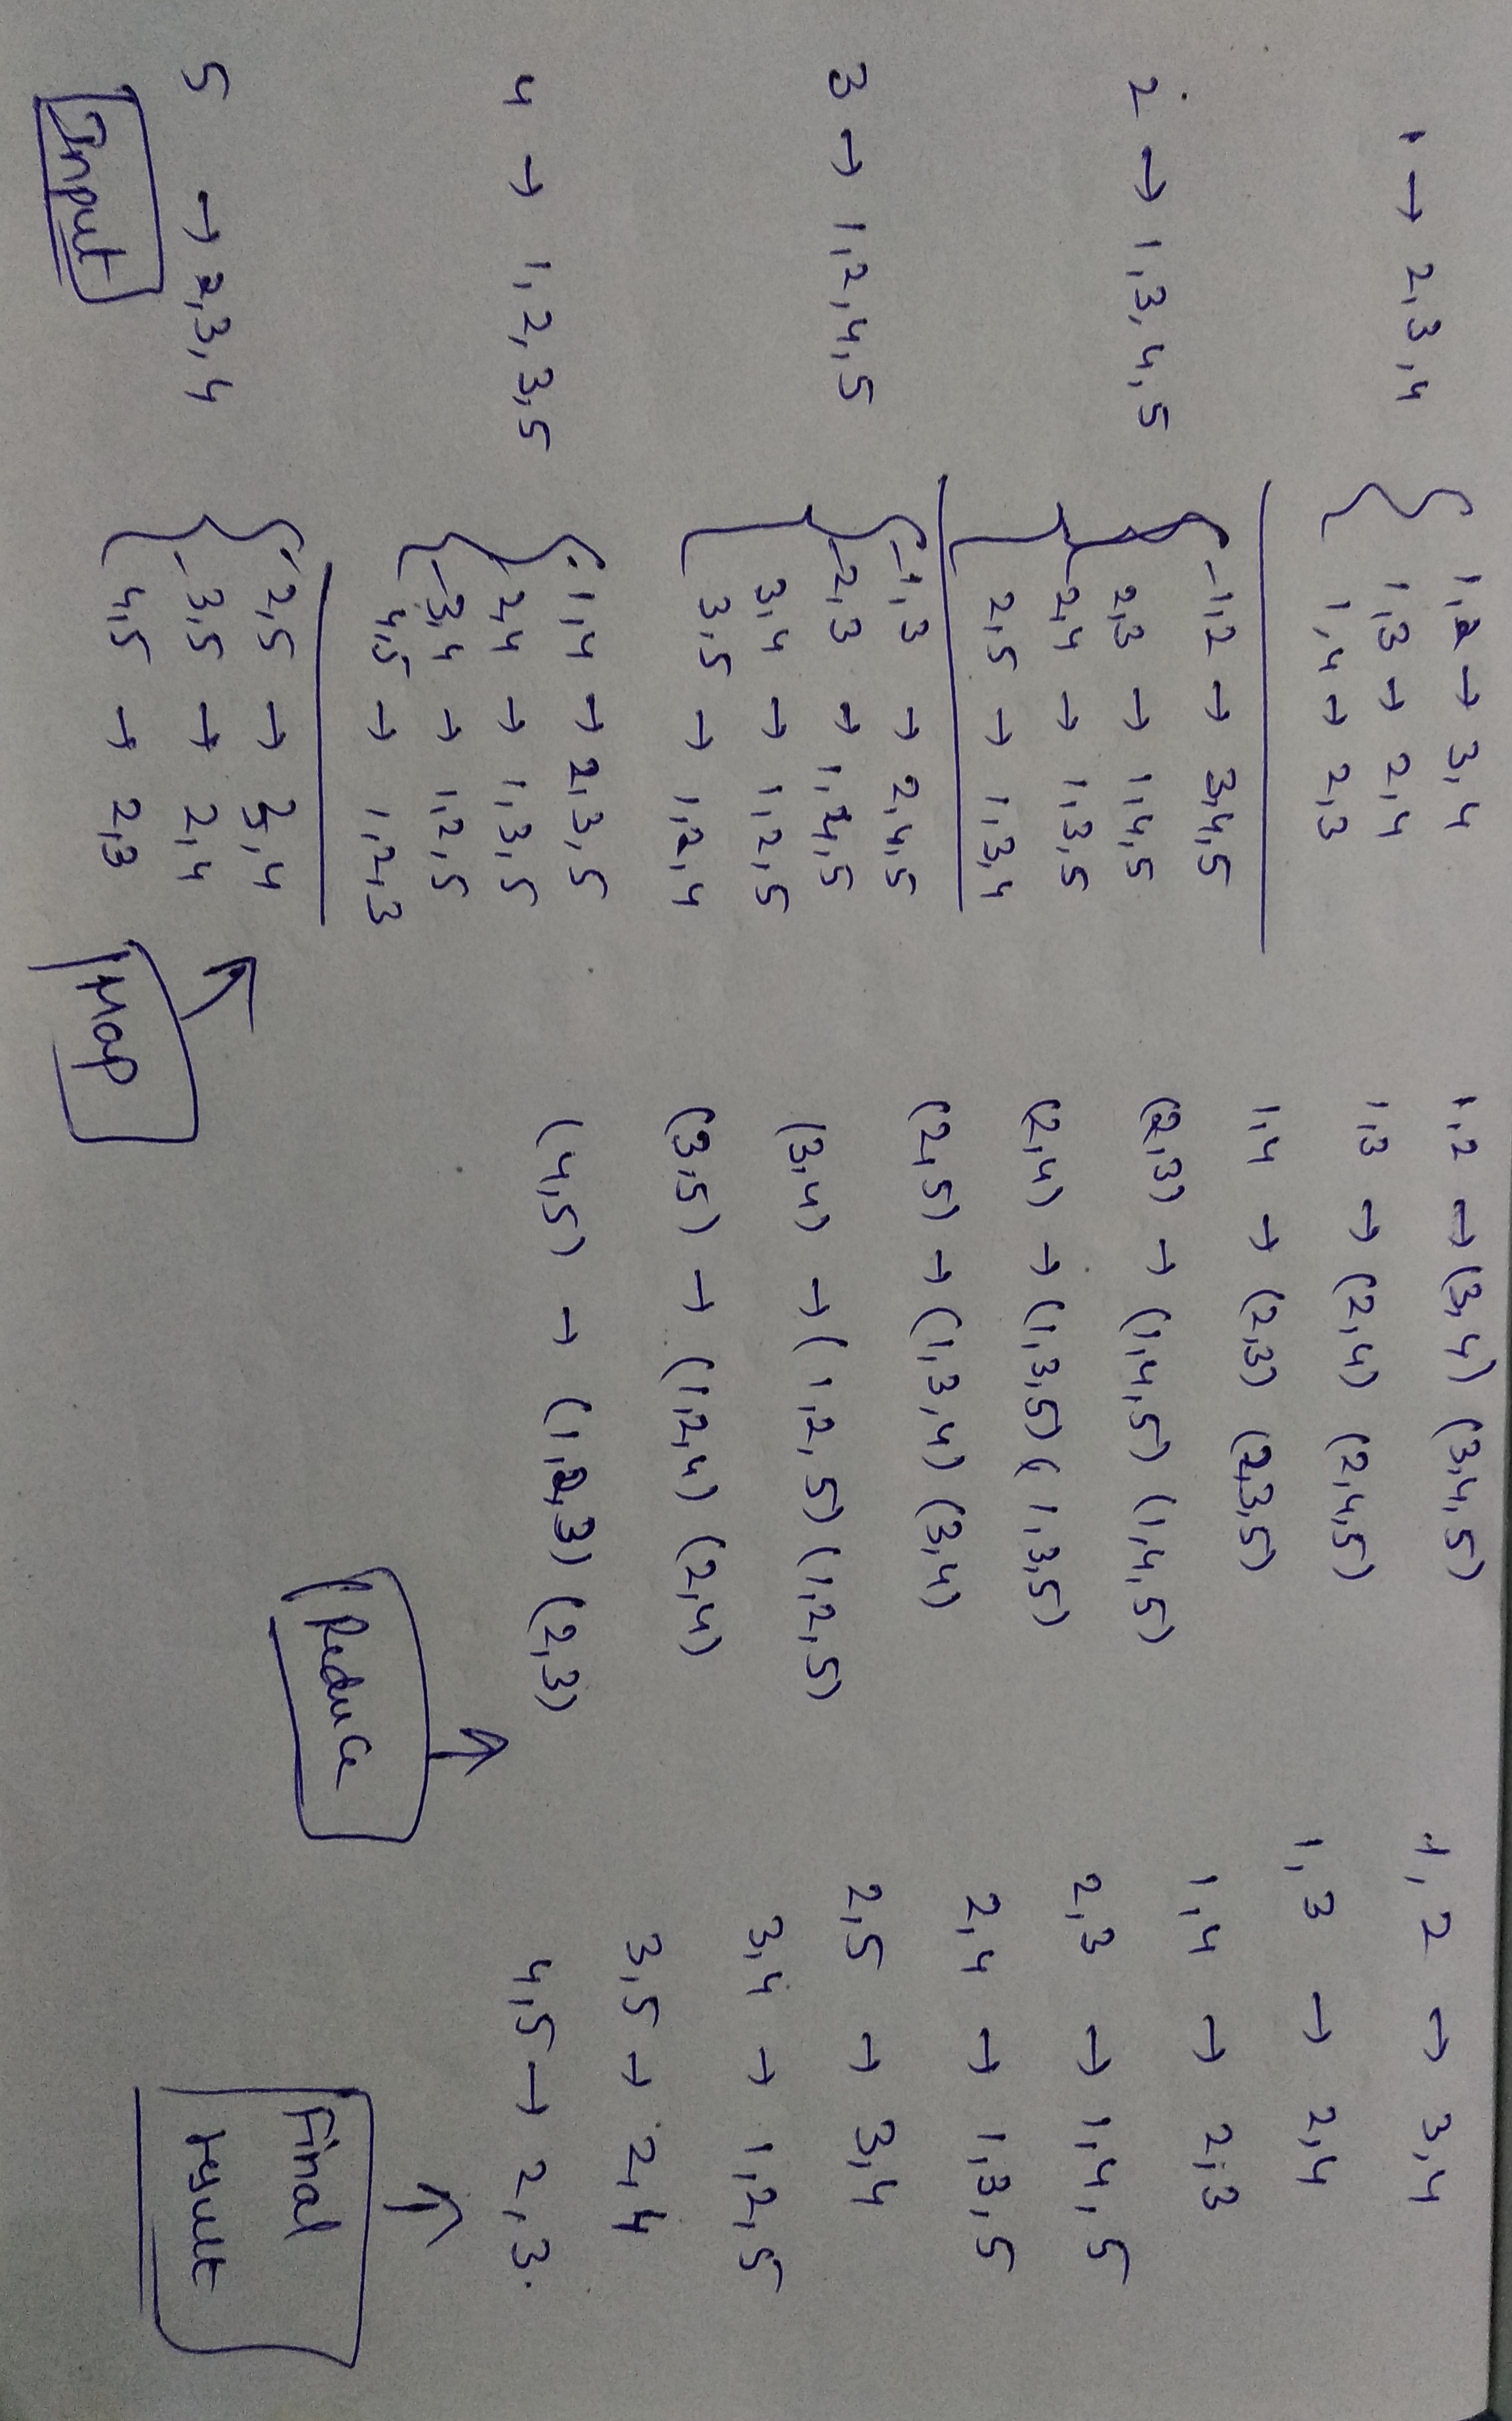 1 → 2,3,4
2 → 1,3,4,5
3 → 1,2,4,5
4 → 1,2,3,5
5 → 2,3,4
Input
1,2 → 3,4
1,3 → 2,4
1,4 → 2,3
1,2 → 3,4,5
2,3 → 1,4,5
2,4 → 1,3,5
2,5 → 1,3,4
1,3 → 2,4,5
2,3 → 1,4,5
3,4 → 1,2,5
3,5 → 1,2,4
1,4 → 2,3,5
2,4 → 1,3,5
3,4 → 1,2,5
4,5 → 1,2,3
2,5 → 3,4
3,5 → 2,4
4,5 → 2,3
Map
1,2 → (3,4) (3,4,5)
1,3 → (2,4) (2,4,5)
1,4 → (2,3) (2,3,5)
(2,3) → (1,4,5) (1,4,5)
(2,4) → (1,3,5) (1,3,5)
(2,5) → (1,3,4) (3,4)
(3,4) → (1,2,5) (1,2,5)
(3,5) → (1,2,4) (2,4)
(4,5) → (1,2,3) (2,3)
Reduce
1,2 → 3,4
1,3 → 2,4
1,4 → 2,3
2,3 → 1,4,5
2,4 → 1,3,5
2,5 → 3,4
3,4 → 1,2,5
3,5 → 2,4
4,5 → 2,3.
Final
result